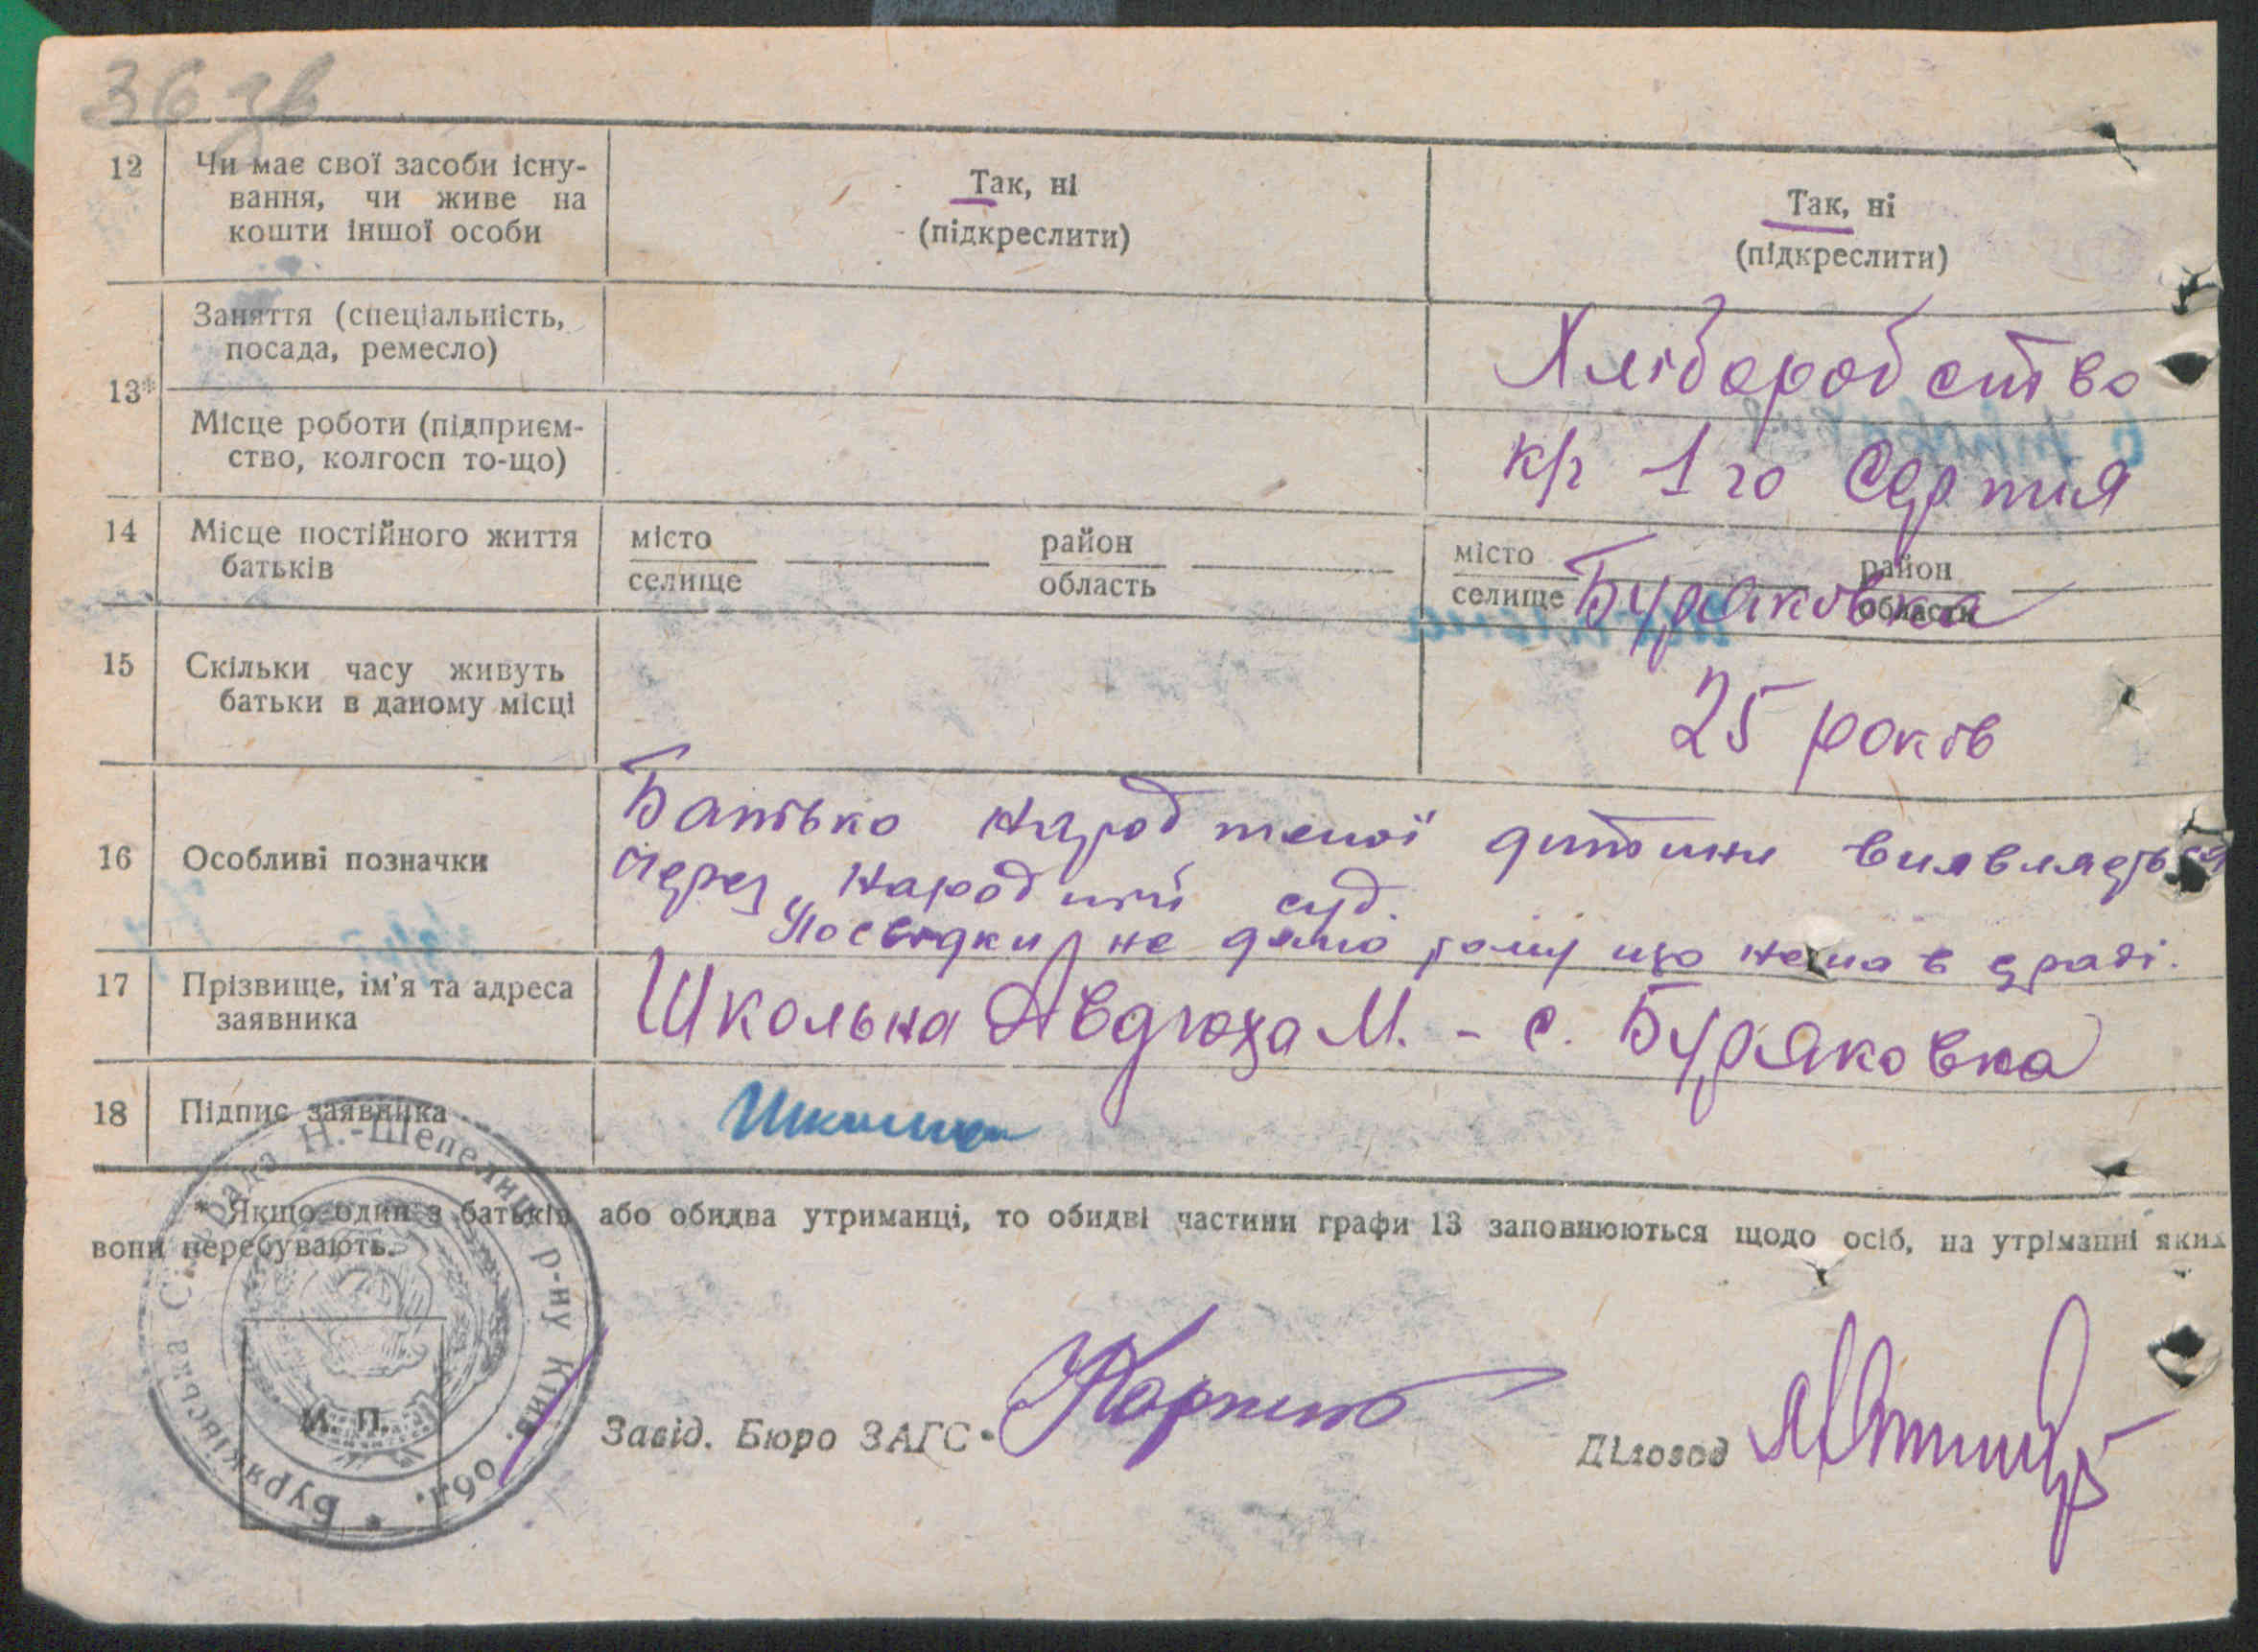 36 зв
12 Чи має свої засоби існу-
вання, чи живе на
кошти іншої особи
Так, ні
(підкреслити)
Так, ні
(підкреслити)
13*
Заняття (спеціальність,
посада, ремесло)
Хліборобство
Місце роботи (підприєм-
ство, колгосп то-що)
к/г 1го Серпня
14 Місце постійного життя
батьків
місто
селище
район
область
місто
селище
Буряковка
район
область
15 Скільки часу живуть
батьки в даному місці
25 років
16 Особливі позначки
Батько народженої дитини виявляється
через народний суд.
Посвідки не дано тому що нема в сраді.
17 Прізвище, ім'я та адреса
заявника
Школьна Явдюха М. - с. Буряковка
18 Підпис заявника
Школьна
* Якщо один з батьків або обидва утриманці, то обидві частини графи 13 заповнюються щодо осіб, на утріманні яких
вони перебувають.
Буряківська Сільрада Н.-Шепелиц. р-ну Київ. обл.
М. П.
Завід. Бюро ЗАГС
Діловод